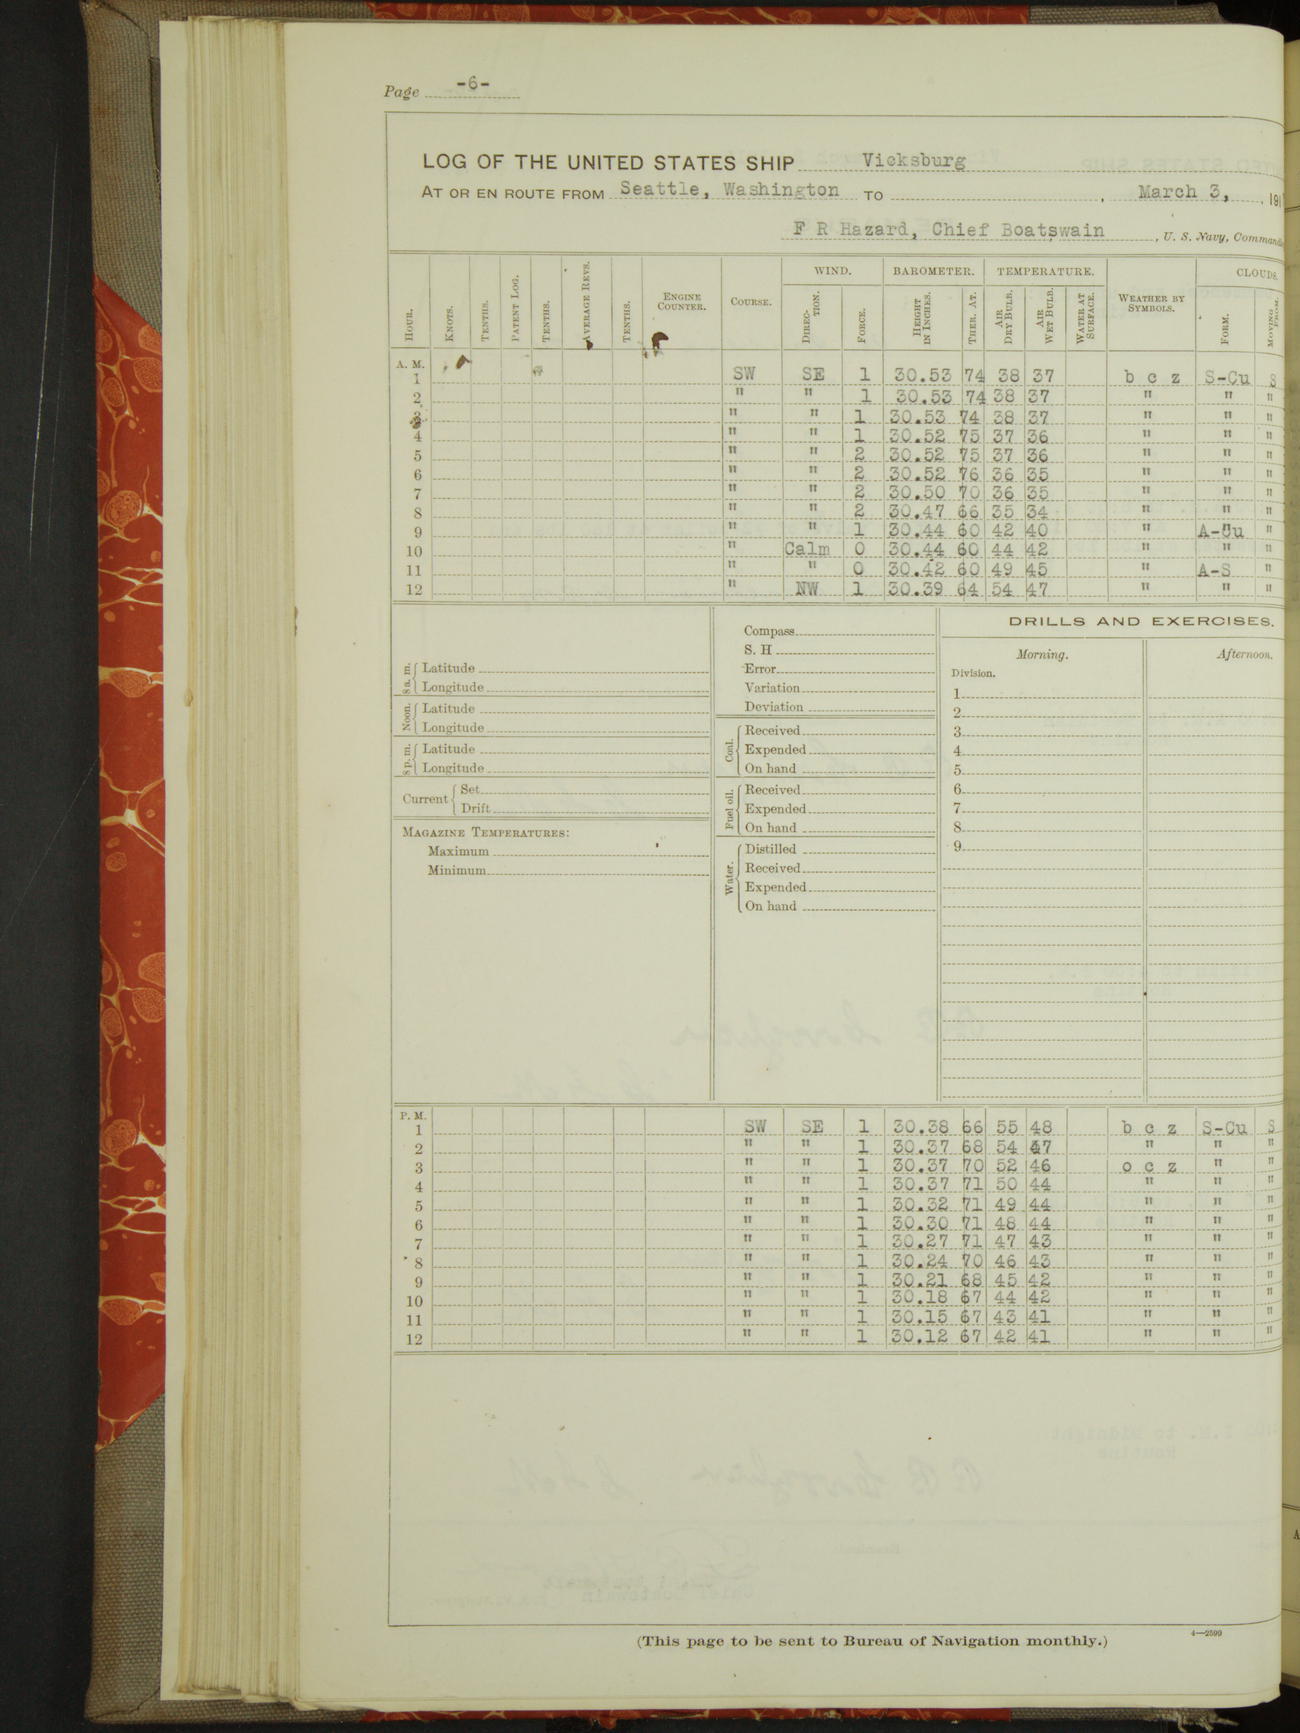 Page -6-
LOG OF THE UNITED STATES SHIP Vicksburg
AT OR EN ROUTE FROM Seattle, Washington TO , March 3, , 191
F R Hazard, Chief Boatswain , U. S. Navy,
HOUR. KNOTS. TENTHS. PATENT LOG. TENTHS. AVERAGE REVS. TENTHS. ENGINE COUNTER. COURSE. WIND. DIREC-TION. FORCE. BAROMETER. HEIGHT IN INCHES. THER. AT. TEMPERATURE. AIR DRY BULB. AIR WET BULB. WATER AT SURFACE. WEATHER BY SYMBOLS. CLOUDS. FORM. MOVING FROM.
A. M.
1 SW SE 1 30.53 74 38 37 b c z S-Cu S
2 " " 1 30.53 74 38 37 " " "
3 " " 1 30.53 74 38 37 " " "
4 " " 1 30.52 75 37 36 " " "
5 " " 2 30.52 75 37 36 " " "
6 " " 2 30.52 76 36 35 " " "
7 " " 2 30.50 70 36 35 " " "
8 " " 2 30.47 66 35 34 " " "
9 " " 1 30.44 60 42 40 " A-Cu "
10 " Calm 0 30.44 60 44 42 " " "
11 " " 0 30.42 60 49 45 " A-S "
12 " NW 1 30.39 64 54 47 " " "
8 a. m. { Latitude
Longitude
Noon. { Latitude
Longitude
8 p. m. { Latitude
Longitude
Current { Set
Drift
MAGAZINE TEMPERATURES:
Maximum
Minimum
Compass
S. H
Error
Variation
Deviation
Coal. { Received
Expended
On hand
Fuel oil. { Received
Expended
On hand
Water. { Distilled
Received
Expended
On hand
DRILLS AND EXERCISES.
Morning. Afternoon.
Division.
1
2
3
4
5
6
7
8
9
P. M.
1 SW SE 1 30.38 66 55 48 b c z S-Cu S
2 " " 1 30.37 68 54 47 " " "
3 " " 1 30.37 70 52 46 o c z " "
4 " " 1 30.37 71 50 44 " " "
5 " " 1 30.32 71 49 44 " " "
6 " " 1 30.30 71 48 44 " " "
7 " " 1 30.27 71 47 43 " " "
8 " " 1 30.24 70 46 43 " " "
9 " " 1 30.21 68 45 42 " " "
10 " " 1 30.18 67 44 42 " " "
11 " " 1 30.15 67 43 41 " " "
12 " " 1 30.12 67 42 41 " " "
(This page to be sent to Bureau of Navigation monthly.)
4—2599